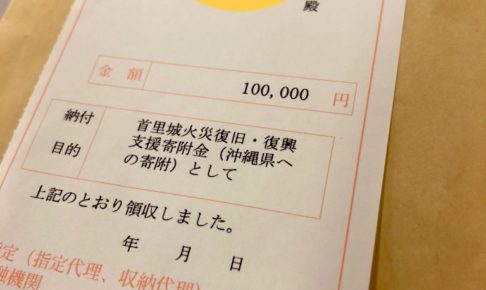 殿
金額 100,000 円
納付目的
首里城火災復旧・復興
支援寄附金（沖縄県へ
の寄附）として
上記のとおり領収しました。
年 月 日
定（指定代理、収納代理）
融機関